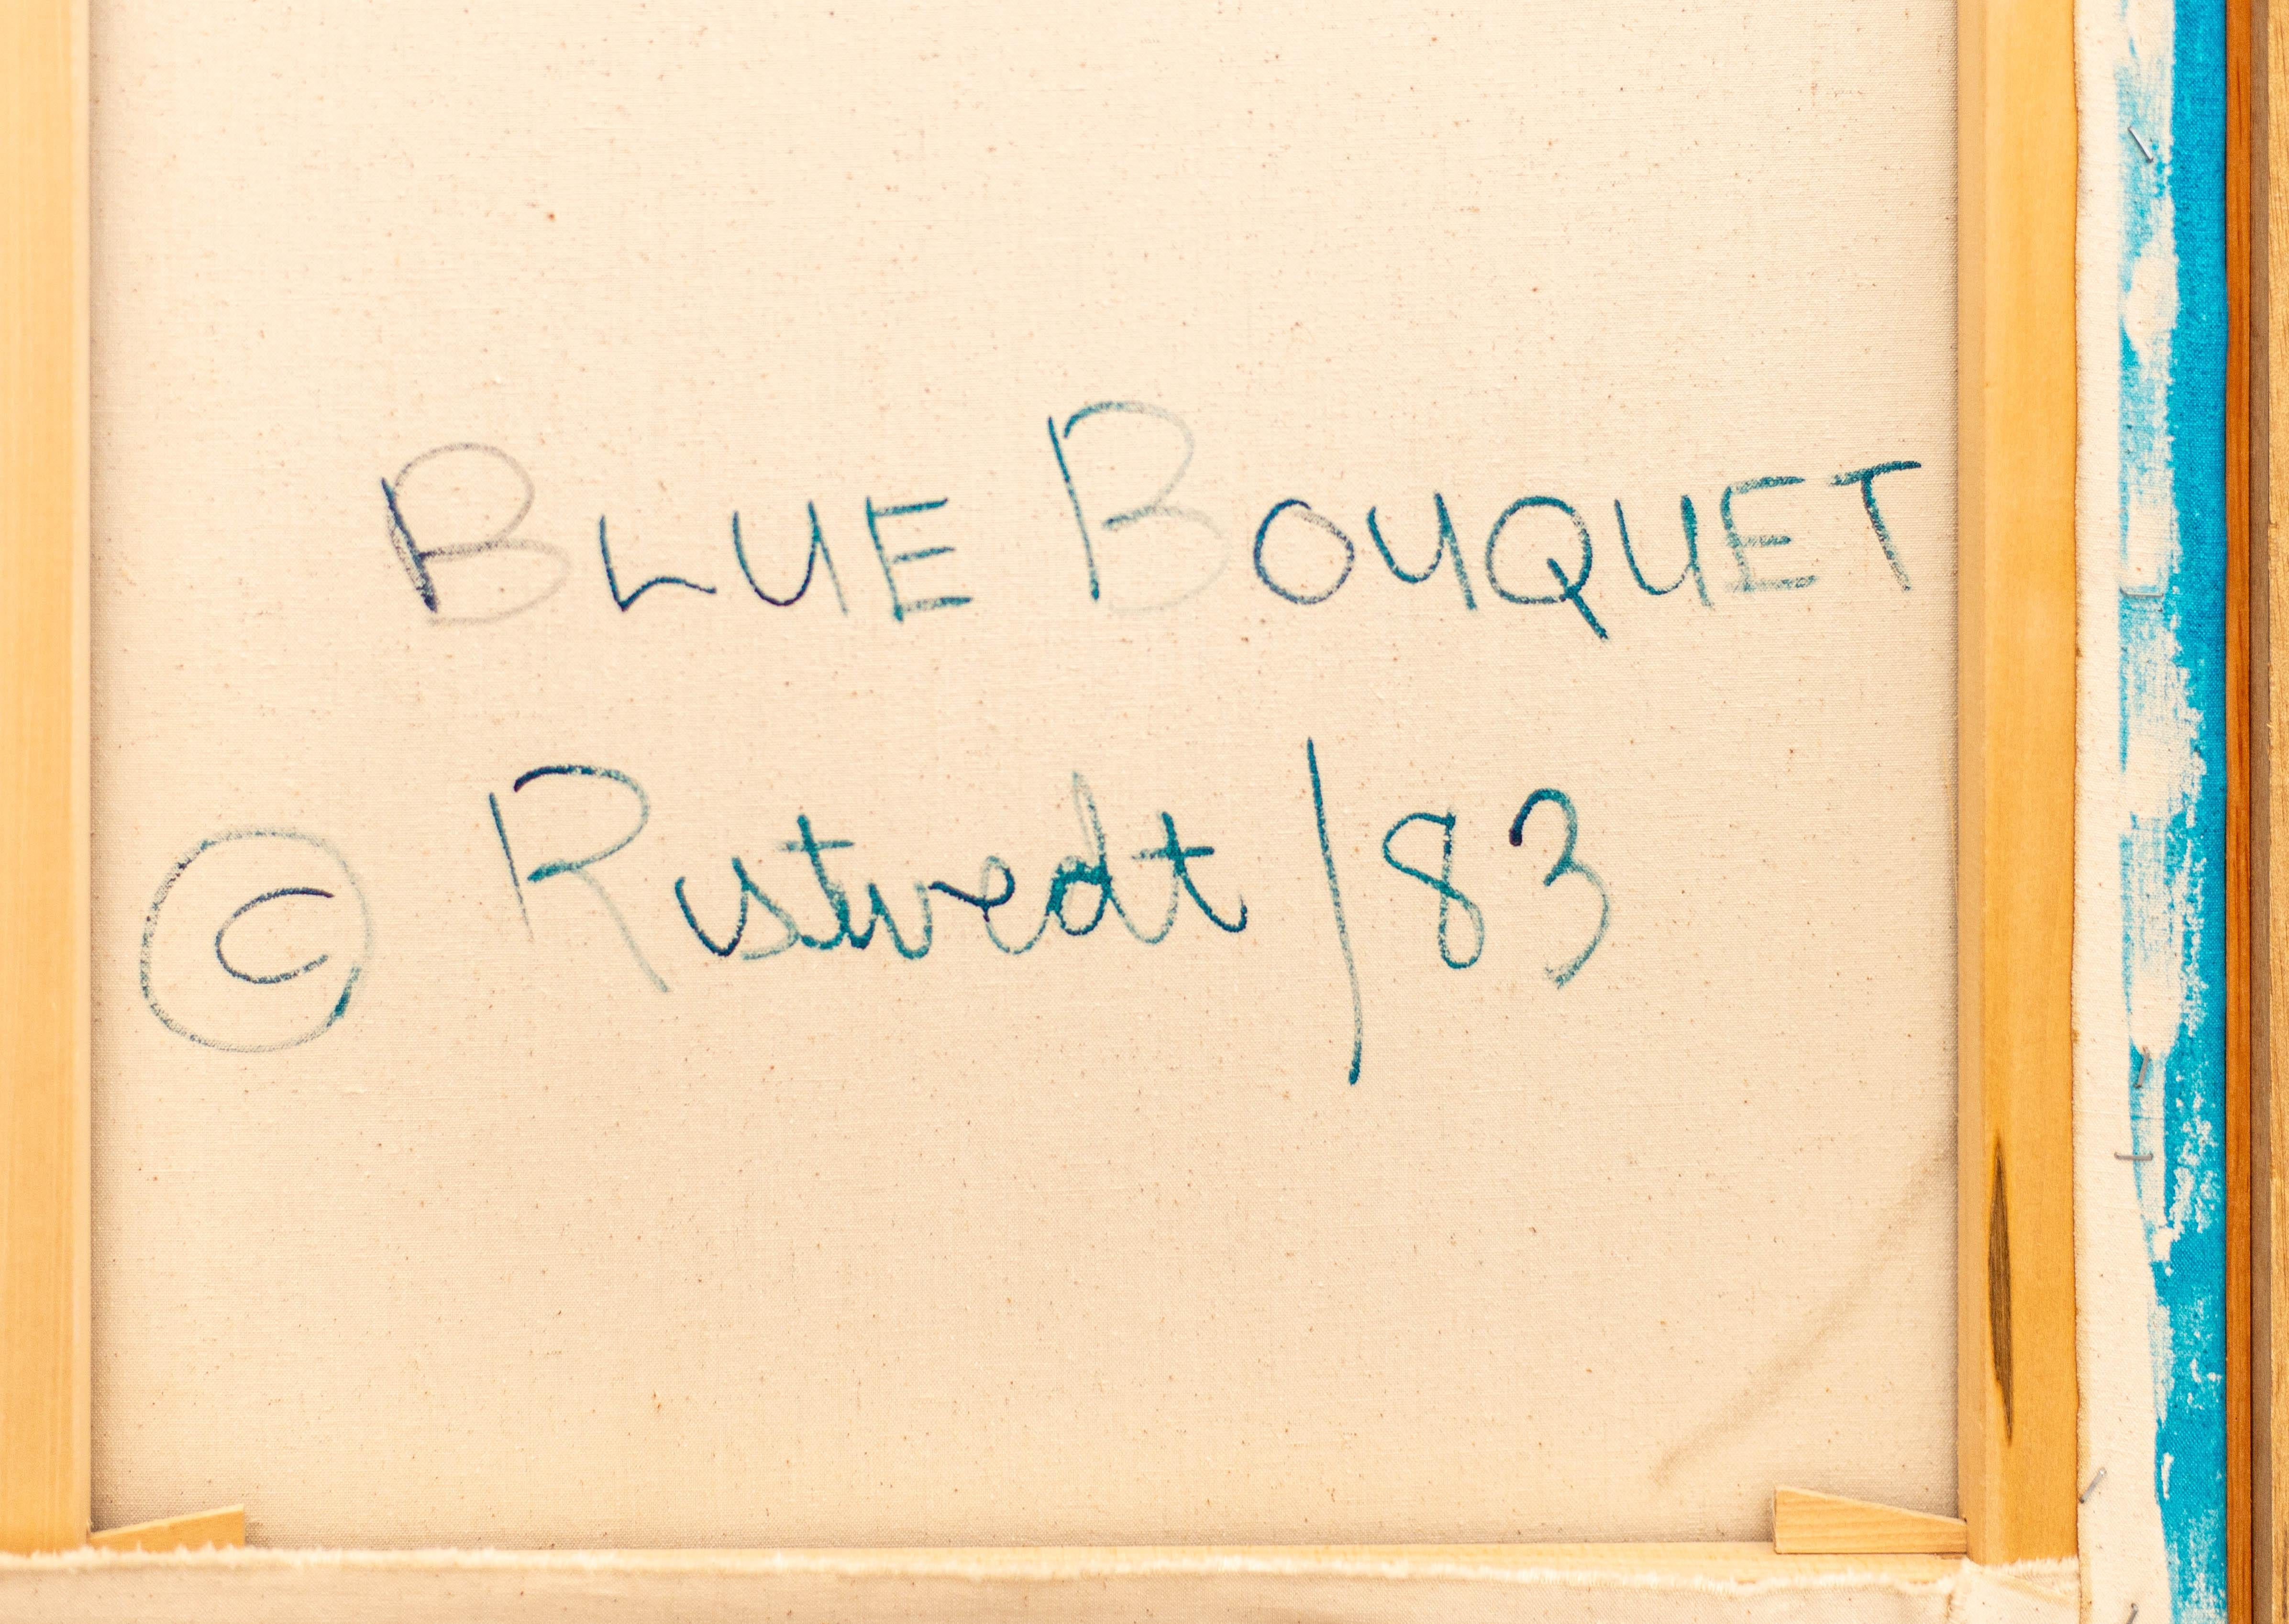 BLUE BOUQUET
© Ristvedt /83